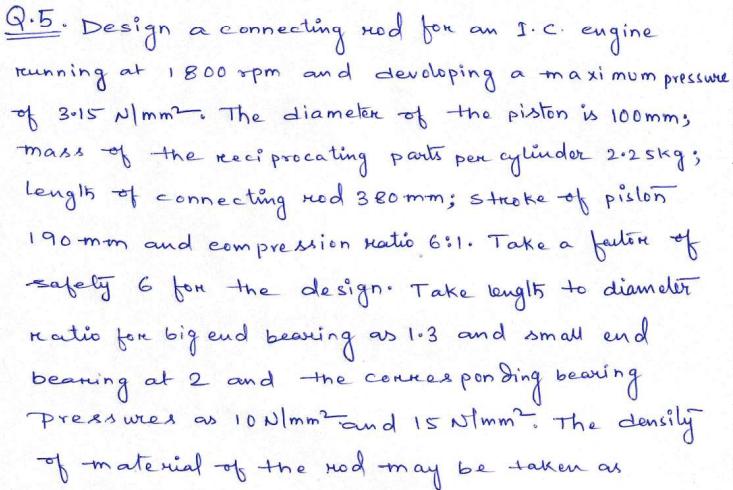 Q.5. Design a connecting rod for an I.C. engine
running at 1800 rpm and devoloping a maximum pressure
of 3.15 N/mm². The diameter of the piston is 100mm;
mass of the reciprocating parts per cylinder 2.25kg;
length of connecting rod 380mm; stroke of piston
190 mm and compression ratio 6:1. Take a factor of
safety 6 for the design. Take length to diameter
ratio for big end bearing as 1.3 and small end
bearing at 2 and the corresponding bearing
pressures as 10 N/mm² and 15 N/mm². The density
of material of the rod may be taken as